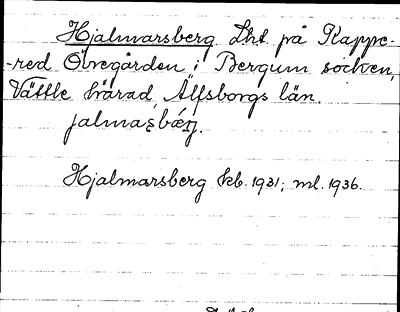 Hjalmarsberg Lht på Kappe-
-red Övregården i Bergum socken,
Vättle härad, Älfsborgs län.
jalmaʂbæ̀rj.
Hjalmarsberg kb. 1931; ml. 1936.